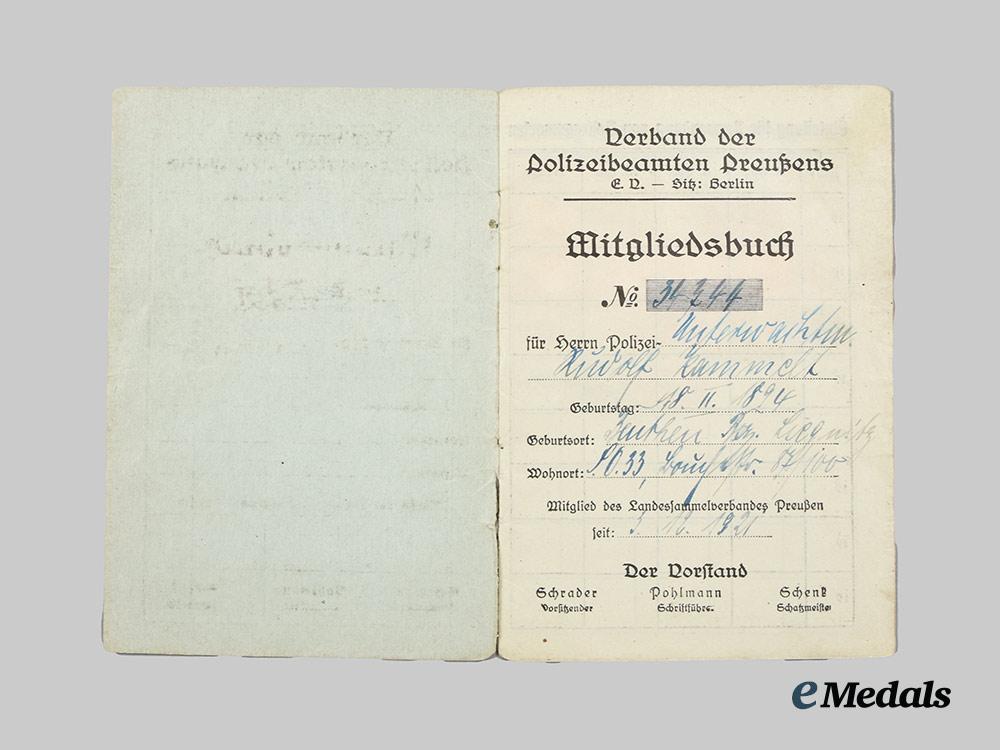 Verband der
Polizeibeamten Preußens
E. V. — Sitz: Berlin
Mitgliedsbuch
№ 34244
für Herrn Polizei- Unterwachtm.
Rudolf
Geburtstag: 18. II. 1894
Geburtsort: Beuthen Bez. Liegnitz
Wohnort: S.O. 33, 87/100
Mitglied des Landessammelverbandes Preußen
seit: 3. 12. 1921
Der Vorstand
Schrader Pohlmann Schenk
Vorsitzender Schriftführ. Schatzmeister
eMedals